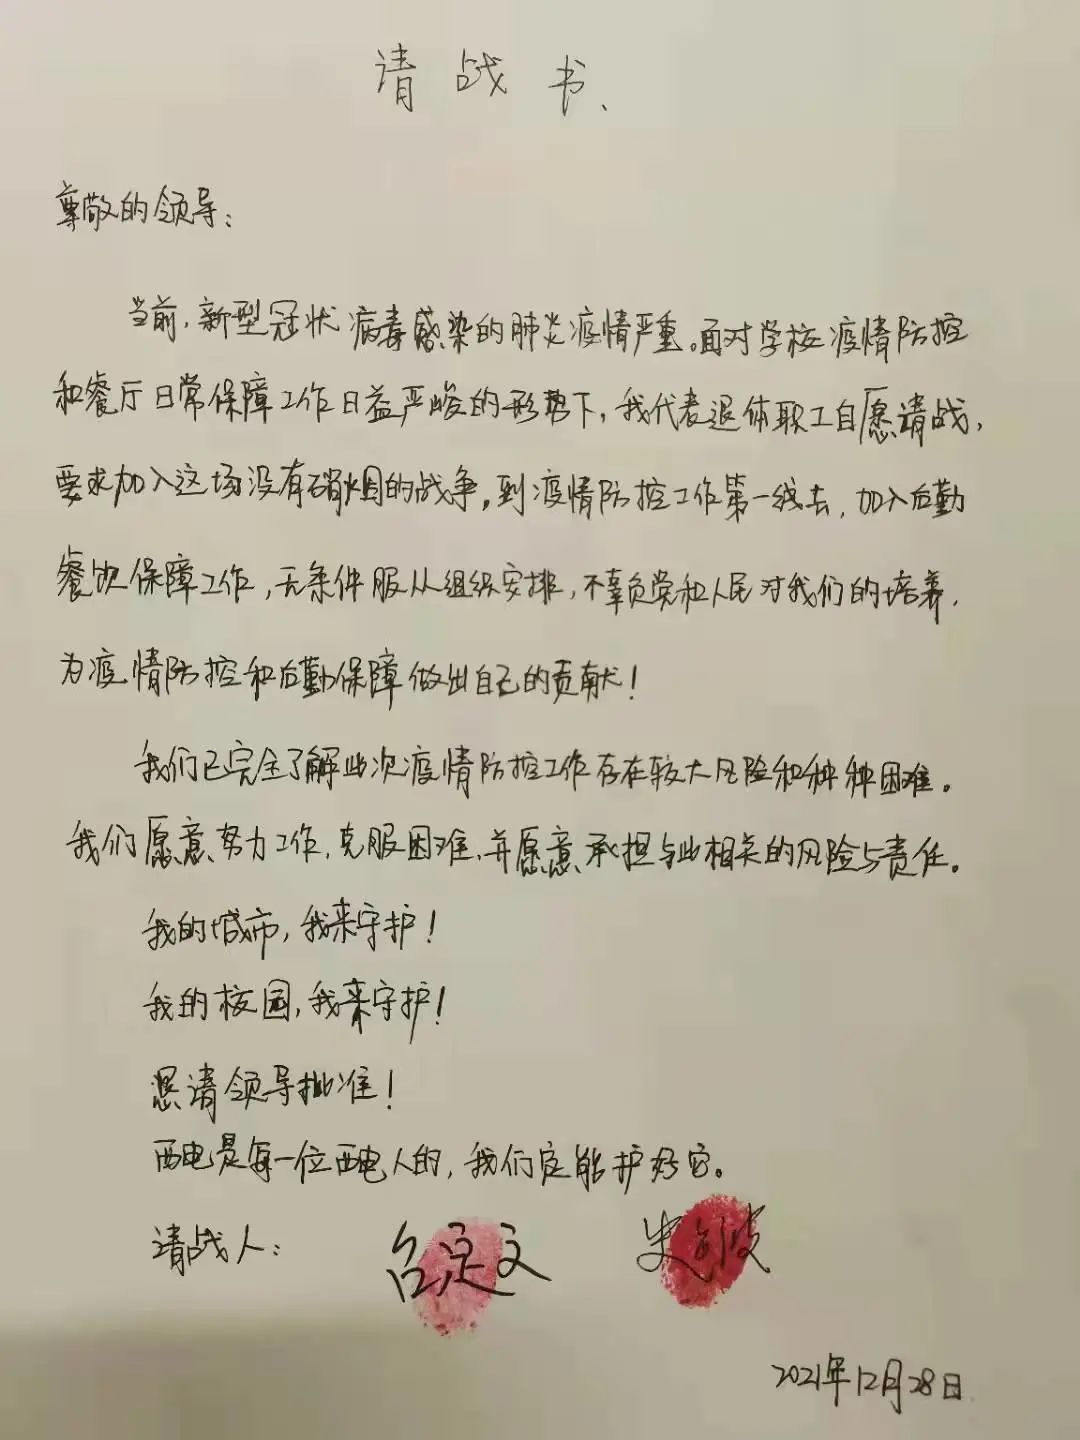 请战书、
尊敬的领导:
当前,新型冠状病毒感染的肺炎疫情严重。面对学校疫情防控
和餐厅日常保障工作日益严峻的形势下,我代表退休职工自愿请战,
要求加入这场没有硝烟的战争,到疫情防控工作第一线去,加入后勤
餐饮保障工作,无条件服从组织安排,不辜负党和人民对我们的培养,
为疫情防控和后勤保障做出自己的贡献!
我们已完全了解此次疫情防控工作存在较大风险和种种困难。
我们愿意努力工作,克服困难,并愿意承担与此相关的风险与责任。
我的城市,我来守护!
我的校园,我来守护!
恳请领导批准!
西电是每一位西电人的,我们定能护好它。
请战人:
2021年12月28日